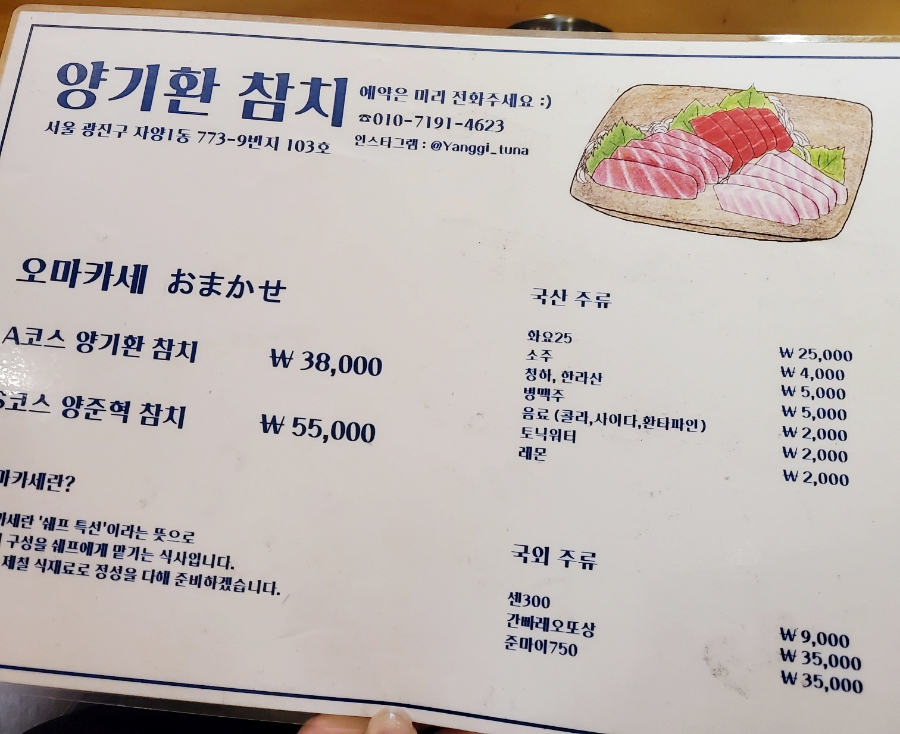 양기환 참치
예약은 미리 전화주세요 :)
☎010-7191-4623
서울 광진구 자양1동 773-9번지 103호
인스타그램 : @Yanggi_tuna
오마카세 おまかせ
A코스 양기환 참치 ₩ 38,000
코스 양준혁 참치 ₩ 55,000
마카세란?
카세란 '쉐프 특선'이라는 뜻으로
구성을 쉐프에게 맡기는 식사입니다.
제철 식재료로 정성을 다해 준비하겠습니다.
국산 주류
화요25 ₩ 25,000
소주 ₩ 4,000
청하, 한라산 ₩ 5,000
병맥주 ₩ 5,000
음료 (콜라,사이다,환타파인) ₩ 2,000
토닉워터 ₩ 2,000
레몬 ₩ 2,000
국외 주류
센300 ₩ 9,000
간빠레오또상 ₩ 35,000
준마이750 ₩ 35,000